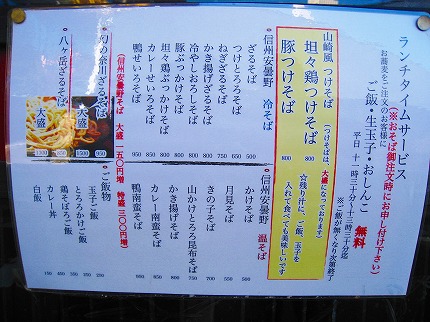 ランチタイムサービス
(※おそば御注文時にお申し付け下さい)
お蕎麦をご注文のお客様に
ご飯・生玉子・おしんこ 無料
平日 十一時三十分〜十三時三十分迄
※ご飯が無くなり次第終了
山崎風 つけそば
(つけそばは、大盛になっております)
坦々鶏つけそば 800
豚つけそば 800
☆残り汁に、ご飯、玉子を
入れて食べても美味しいです
信州安曇野 冷そば
ざるそば 500
つけとろろそば 650
ねぎざるそば
かき揚げざるそば
冷やしおろしそば
豚ぶっかけそば 800
坦々鶏ぶっかけそば 800
カレーせいろそば 850
鴨せいろそば 950
(信州安曇野そば 大盛一五〇円増 特盛三〇〇円増)
信州安曇野 温そば
かけそば 500
月見そば 550
きの子そば 700
山かけとろろ昆布そば
かき揚げそば
カレー南蛮そば
鴨南蛮そば
幻の奈川ざるそば 950
大盛 1500
八ヶ岳ざるそば
大盛 1100
ご飯物
玉子ご飯 200
とろろかけご飯
鶏そぼろご飯
カレー丼 450
白飯 150